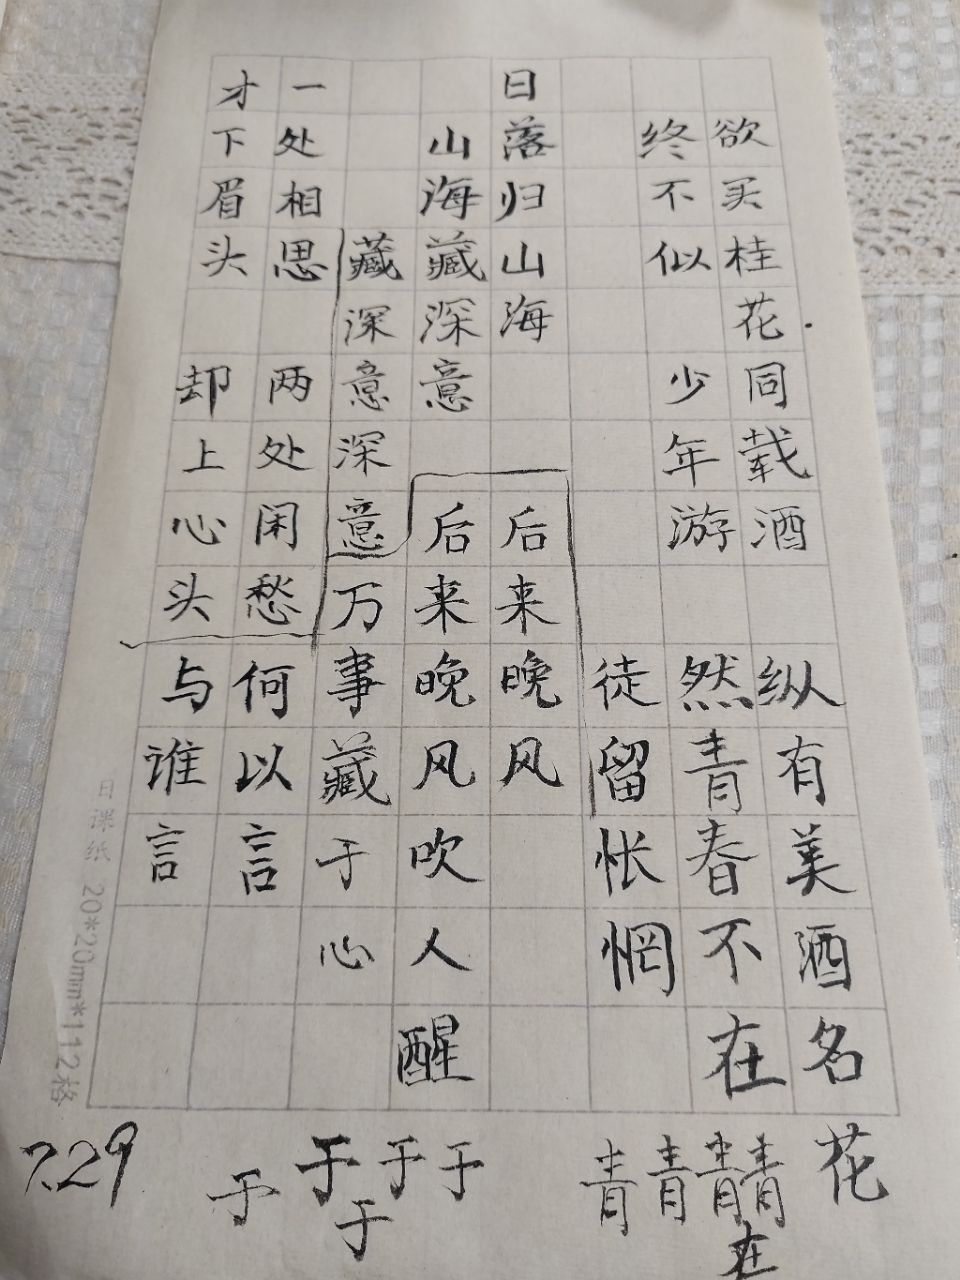 欲买桂花同载酒
终不似 少年游
纵有美酒名花
然青春不在
徒留怅惘
日落归山海
山海藏深意
藏深意深意
后来晚风
后来晚风吹人醒
万事藏于心
一处相思 两处闲愁
才下眉头 却上心头
何以言
与谁言
青青青青
在
于于于于
于
7.29
日课纸 20*20mm*112格